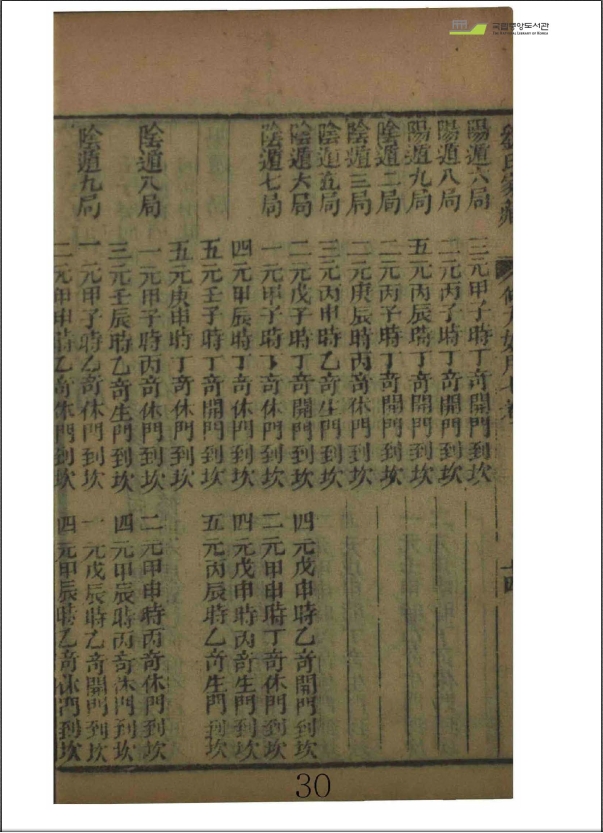 국립중앙도서관
THE NATIONAL LIBRARY OF KOREA
陽遁六局 三元甲子時丁竒開門到坎
陽遁八局 二元丙子時丁竒開門到坎
陽遁九局 五元丙辰時丁竒開門到坎
陰遁二局 二元丙子時丁竒開門到坎
陰遁三局 二元庚辰時丙竒休門到坎
陰遁五局 三元丙申時乙竒生門到坎
陰遁六局 二元戊子時丁竒開門到坎 四元戊申時乙竒開門到坎
陰遁七局 一元甲子時丁竒休門到坎 二元甲申時丁竒休門到坎
四元甲辰時丁竒休門到坎 四元戊申時丙竒生門到坎
五元壬子時丁竒開門到坎 五元丙辰時乙竒生門到坎
五元庚申時丁竒休門到坎
陰遁八局 一元甲子時丙竒休門到坎 二元甲申時丙竒休門到坎
三元壬辰時乙竒生門到坎 四元甲辰時丙竒休門到坎
陰遁九局 一元甲子時乙竒休門到坎 一元戊辰時乙竒開門到坎
二元甲申時乙竒休門到坎 四元甲辰時乙竒休門到坎
30